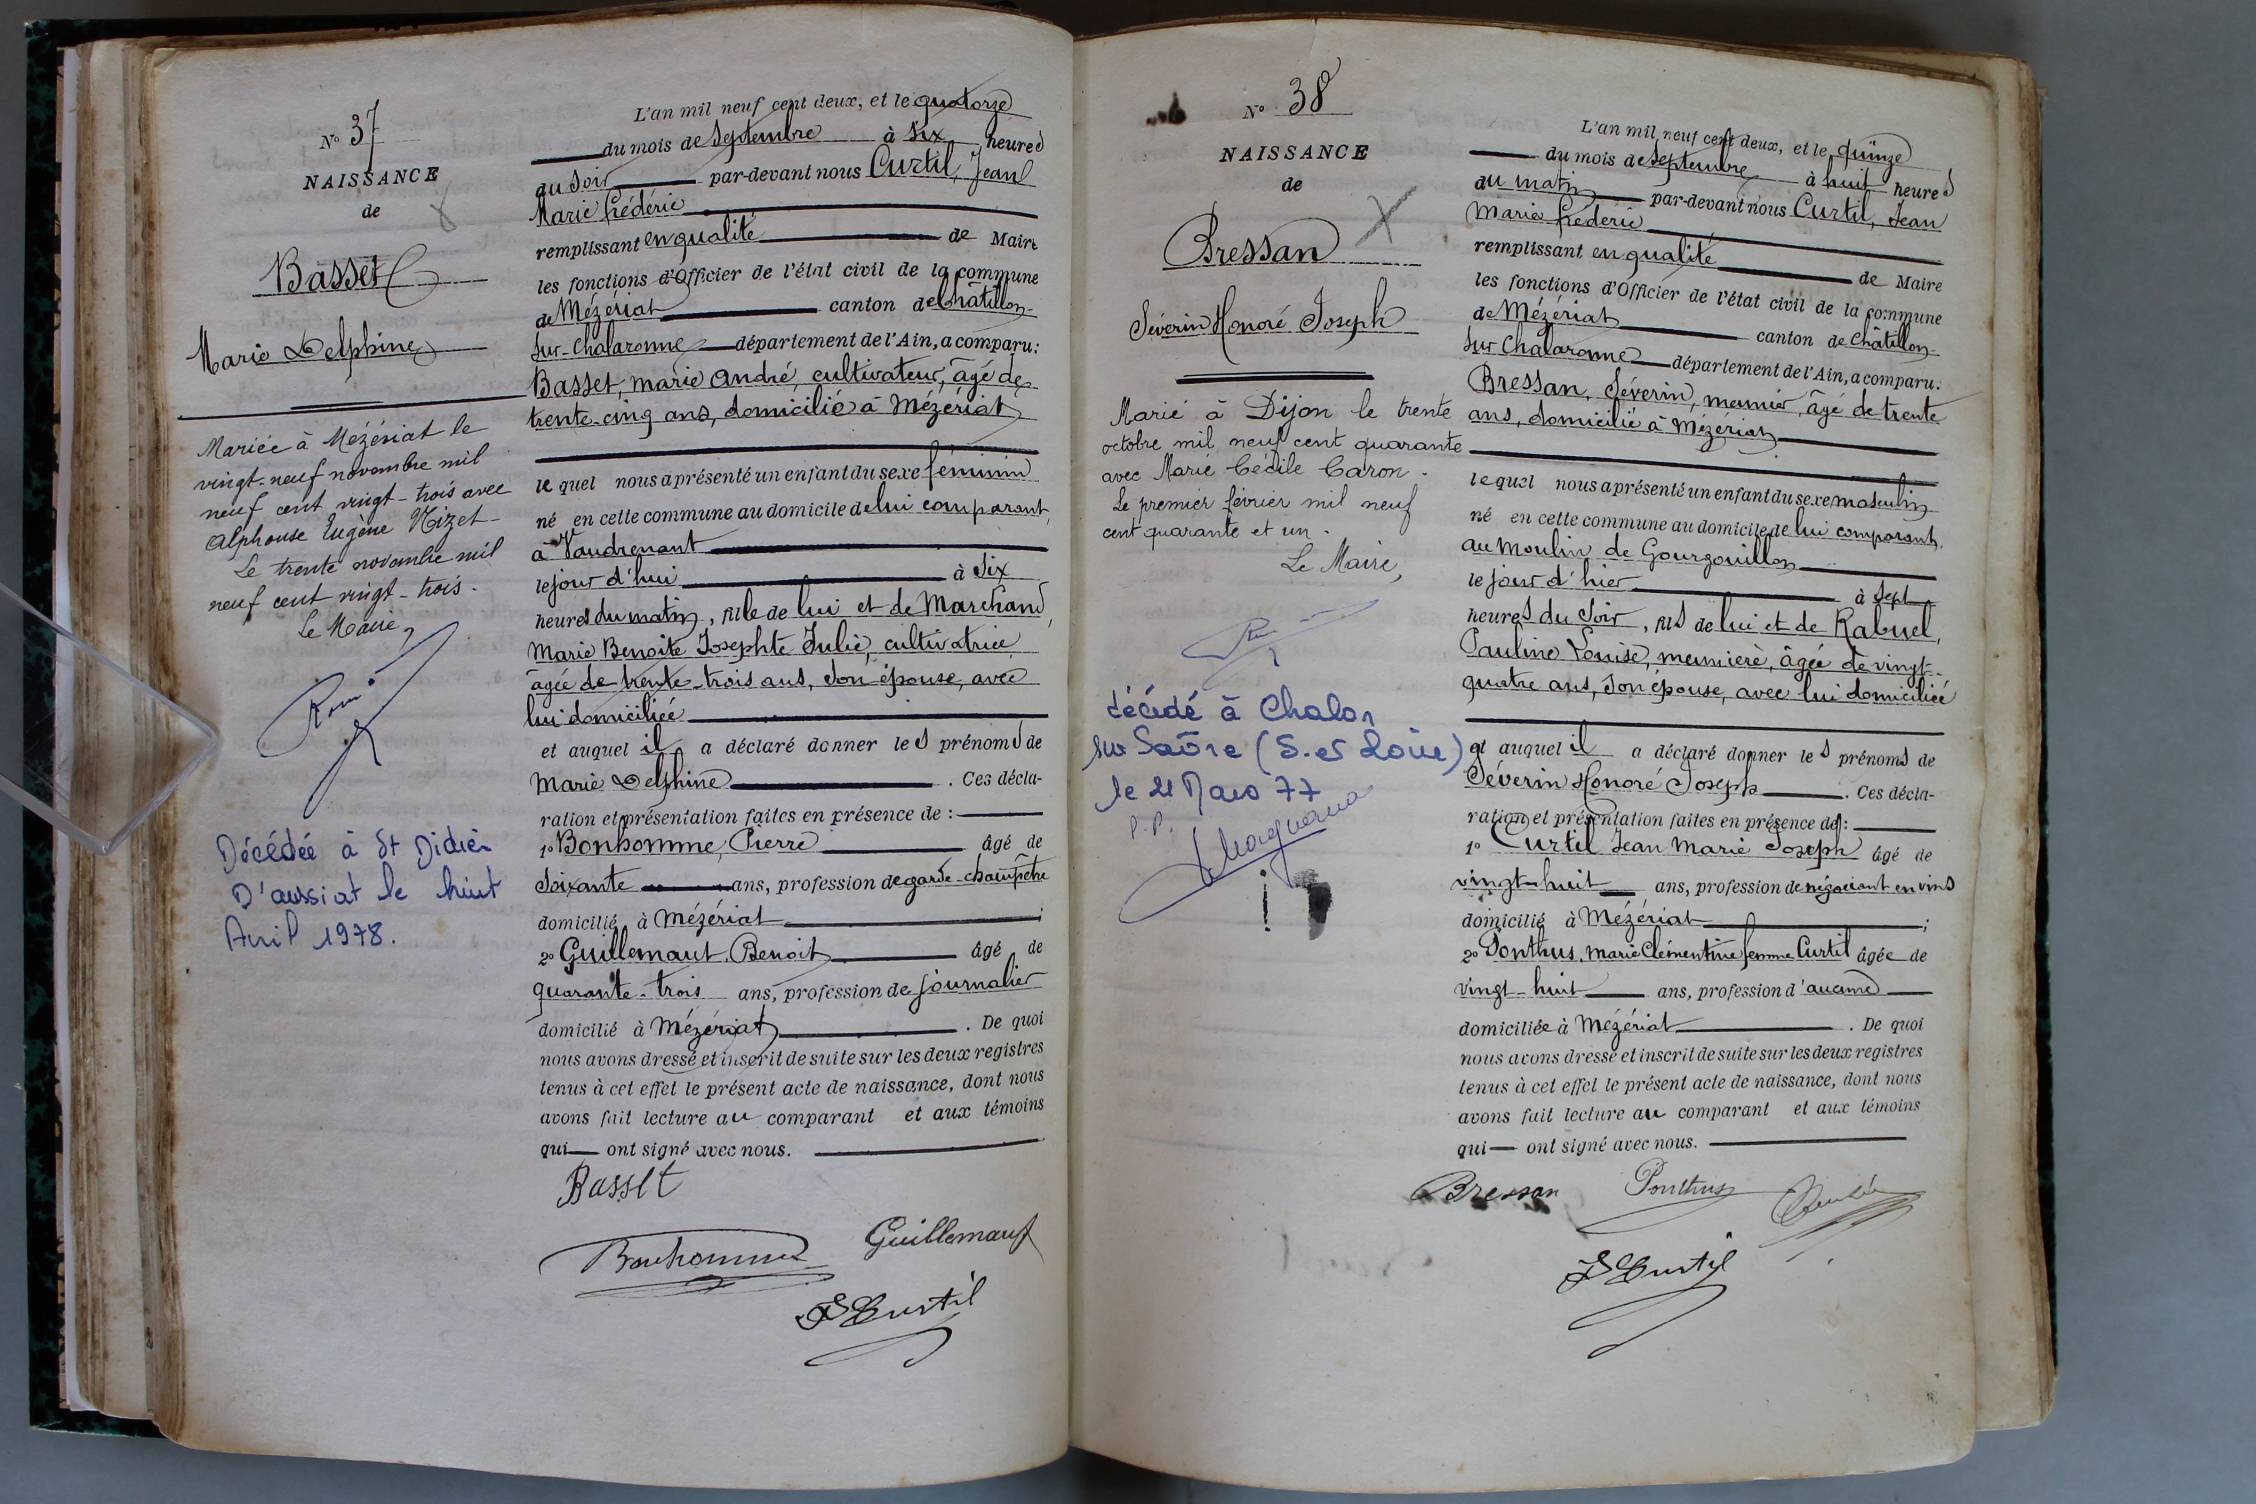 N° 37
NAISSANCE
de
Basset
Marie Delphine
Mariée à Mézériat le
vingt-neuf novembre mil
neuf cent vingt-trois avec
Alphonse Eugène Nizet-
Le trente novembre mil
neuf cent vingt-trois.
Le Maire,
Décédée à St Didier
D'aussiat le huit
Avril 1978.
L'an mil neuf cent deux, et le quatorze
du mois de Septembre à Six heures
du Soir par-devant nous Curtil, Jean
Marie Frédéric
remplissant en qualité de Maire
les fonctions d'Officier de l'état civil de la commune
de Mézériat canton de Châtillon-
sur-Chalaronne département de l'Ain, a comparu:
Basset, Marie André, cultivateur, âgé de
trente-cinq ans, domicilié à Mézériat
le quel nous a présenté un enfant du sexe féminin
né en cette commune au domicile de lui comparant,
à Vaudrenant
le jour d'hui à Six
heures du matin, fille de lui et de Marchand,
Marie Benoite Josephte Julie, cultivatrice
âgée de trente-trois ans, son épouse, avec
lui domiciliée
et auquel il a déclaré donner les prénoms de
Marie Delphine . Ces décla-
ration et présentation faites en présence de :
1° Bonhomme, Pierre âgé de
Soixante ans, profession de garde-champêtre
domicilié à Mézériat ;
2° Guillemaut, Benoit âgé de
quarante-trois ans, profession de journalier
domicilié à Mézériat . De quoi
nous avons dressé et inscrit de suite sur les deux registres
tenus à cet effet le présent acte de naissance, dont nous
avons fait lecture au comparant et aux témoins
qui ont signé avec nous.
Basset
Bonhomme Guillemaut
J Curtil
N° 38
NAISSANCE
de
Bressan
Séverin Honoré Joseph
Marié à Dijon le trente
octobre mil neuf cent quarante
avec Marie Cécile Caron.
Le premier février mil neuf
cent quarante et un.
Le Maire,
décédé à Chalon
sur Saône (S. et Loire)
le 21 Mars 77
P.P.
L'an mil neuf cent deux, et le quinze
du mois de Septembre à huit heures
du matin par-devant nous Curtil, Jean
Marie Frédéric
remplissant en qualité de Maire
les fonctions d'Officier de l'état civil de la commune
de Mézériat canton de Châtillon-
sur Chalaronne département de l'Ain, a comparu:
Bressan, Séverin, meunier, âgé de trente
ans, domicilié à Mézériat
le quel nous a présenté un enfant du sexe masculin
né en cette commune au domicile de lui comparant,
au Moulin de Gourgouillon
le jour d'hier à Sept
heures du Soir, fils de lui et de Rabuel,
Pauline Louise, meunière, âgée de vingt-
quatre ans, son épouse, avec lui domiciliée
et auquel il a déclaré donner les prénoms de
Séverin Honoré Joseph . Ces décla-
ration et présentation faites en présence de :
1° Curtil Jean Marie Joseph âgé de
vingt-huit ans, profession de négociant en vins
domicilié à Mézériat ;
2° Ponthus, Marie Clémentine femme Curtil âgée de
vingt-huit ans, profession d'aucune
domiciliée à Mézériat . De quoi
nous avons dressé et inscrit de suite sur les deux registres
tenus à cet effet le présent acte de naissance, dont nous
avons fait lecture au comparant et aux témoins
qui ont signé avec nous.
Bressan Ponthus
J Curtil